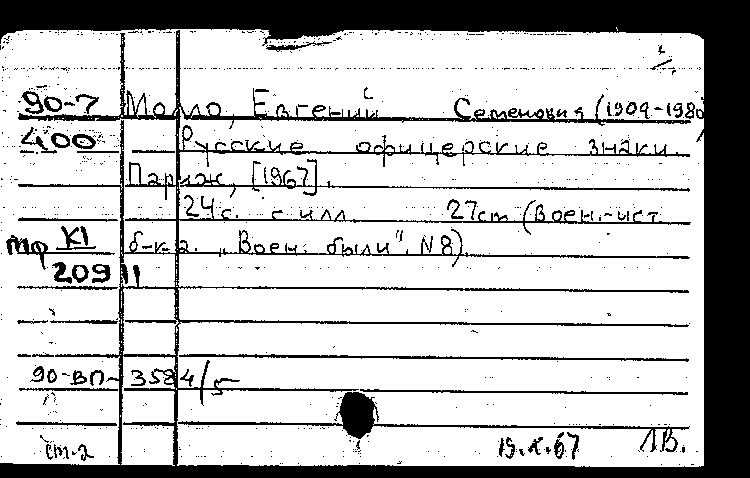 90-7 Молло, Евгений Семенович (1909-1980)
400 Русские офицерские знаки.
Париж, [1967].
24с. с илл. 27см (Воен.-ист.
Мф К1 б-ка „Воен. были", N8).
20911
90-ВП-3584/5
ст.2 19.X.67 ЛВ.